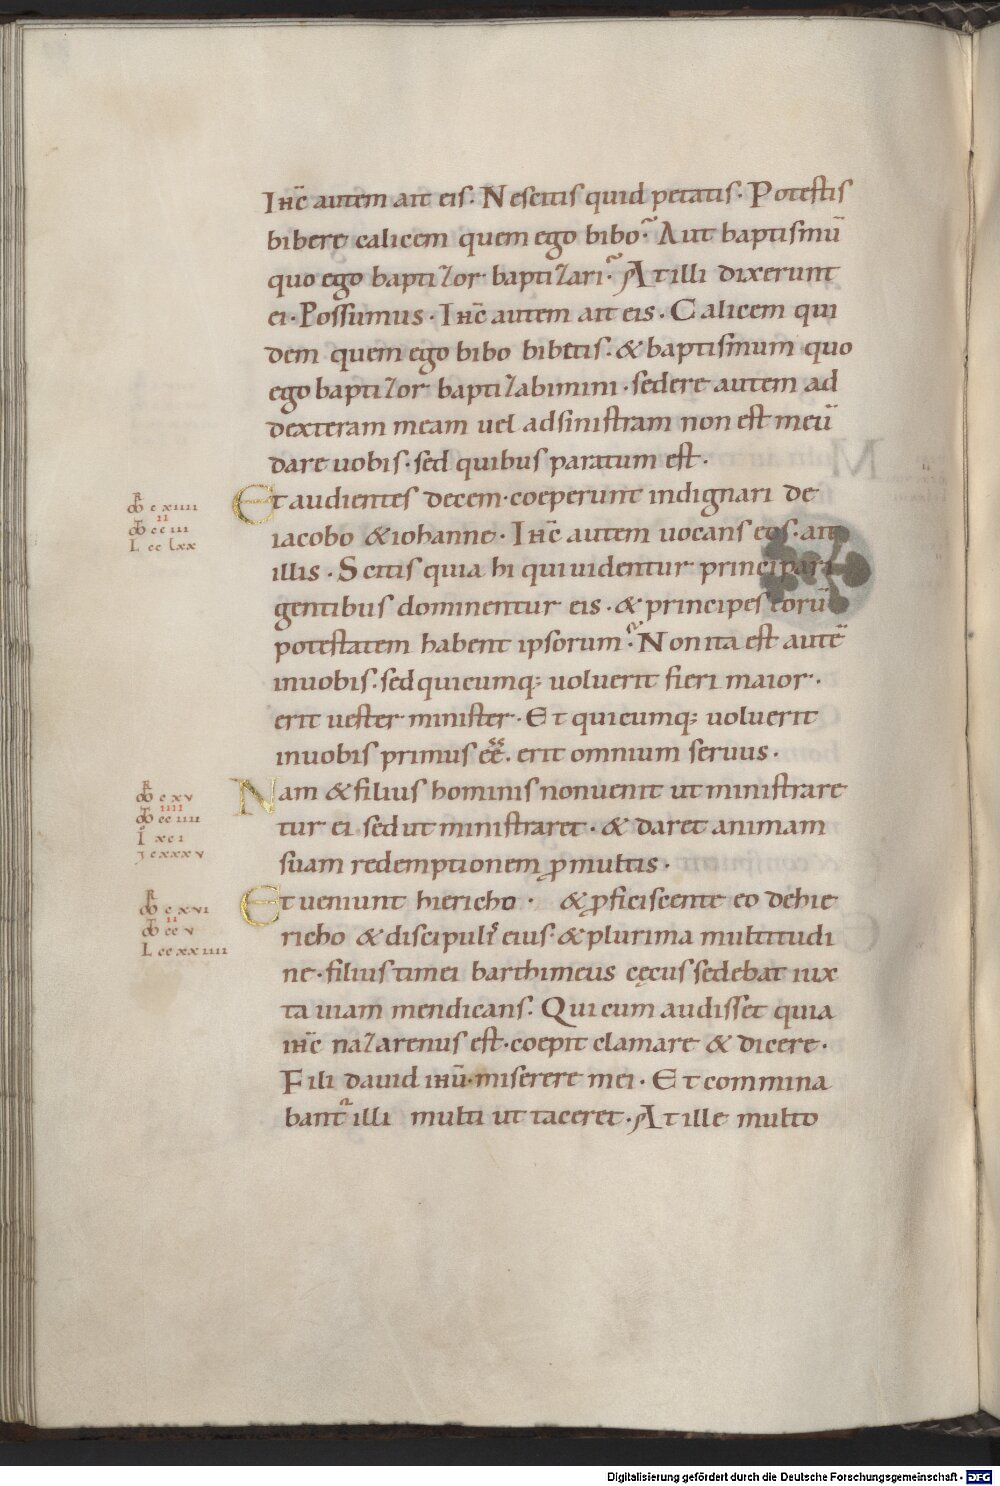 Ihc̄ autem ait eis · Nescitis quid petatis · Potestis
bibere calicem quem ego bibo · Aut baptismū
quo ego baptizor baptizari · At illi dixerunt
ei · Possumus · Ihc̄ autem ait eis · Calicem qui
dem quem ego bibo bibetis · & baptismum quo
ego baptizor baptizabimini · sedere autem ad
dexteram meam uel adsinistram non est meū
dare uobis · sed quibus paratum est ·
Et audientes decem · coeperunt indignari de
iacobo & iohanne · Ihc̄ autem uocans eos · ait
illis · Scitis quia hi qui uidentur principari
gentibus dominentur eis · & principes eorū
potestatem habent ipsorum · Non ita est autē
inuobis · sed quicumq; uoluerit fieri maior ·
erit uester minister · Et quicumq; uoluerit
inuobis primus eē · erit omnium seruus ·
Nam & filius hominis nonuenit ut ministrare
tur ei sed ut ministraret · & daret animam
suam redemptionem ꝓ multis ·
Et ueniunt hiericho · & ꝓficiscente eo dehie
richo & discipuli eius · & plurima multitudi
ne · filius timei barthimeus cęcus sedebat iux
ta uiam mendicans · Qui cum audisset quia
ihc̄ nazarenus est · coepit clamare & dicere ·
Fili dauid ihū · miserere mei · Et commina
bant᷑ illi multi ut taceret · At ille multo
R
c xiiii
II
cc iii
L cc lxx
R
c xv
IIII
cc iiii
I xc i
c xxx v
R
c xvi
II
cc v
L cc xx iiii
Digitalisierung gefördert durch die Deutsche Forschungsgemeinschaft - DFG